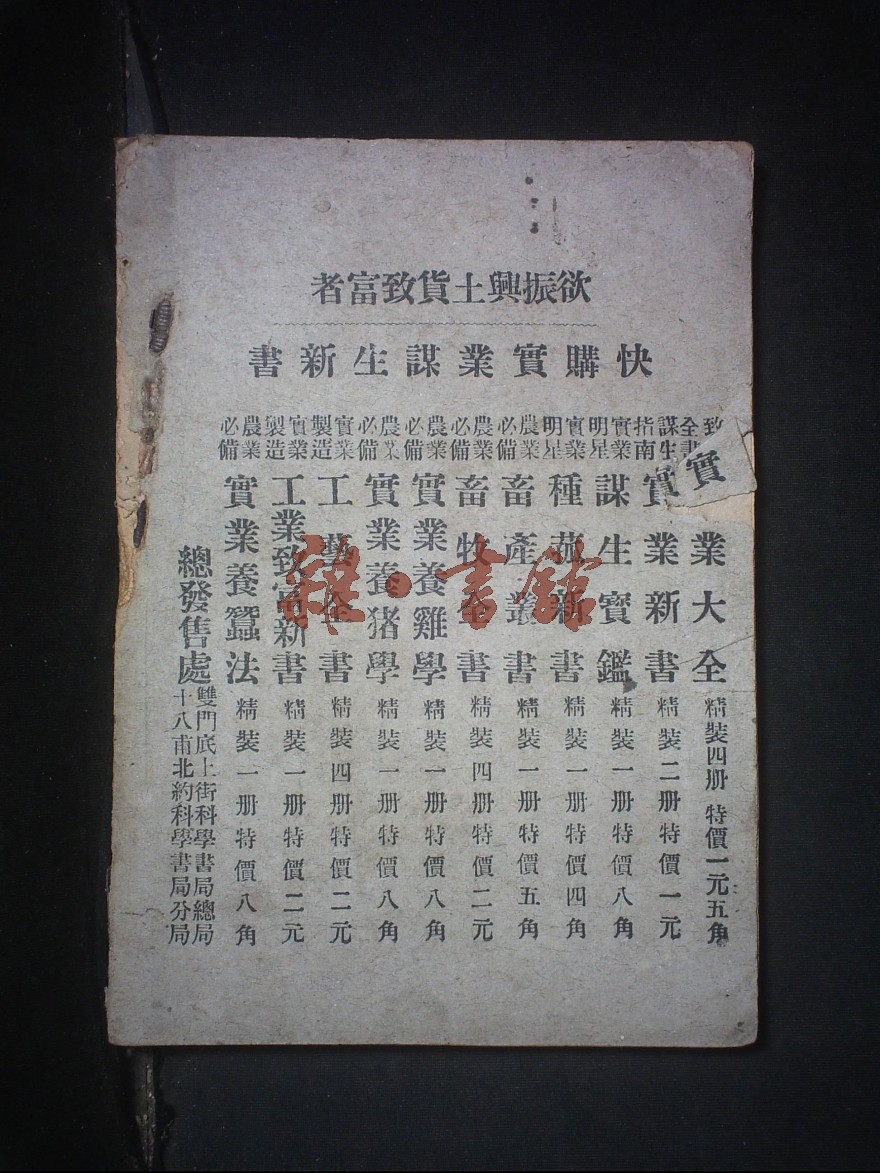 欲振興土貨致富者
快購實業謀生新書
致
全書
實業大全
精裝四册特價一元五角
謀生
指南
實業新書
精裝二册特價一元
實業
明星
謀生寶鑑
精裝一册特價八角
實業
明星
種菰新書
精裝一册特價四角
農業
必備
畜產叢書
精裝一册特價五角
農業
必備
畜牧全書
精裝四册特價二元
農業
必備
實業養雞學
精裝一册特價八角
農業
必備
實業養猪學
精裝一册特價八角
實業
製造
工藝全書
精裝四册特價二元
實業
製造
工業致富新書
精裝一册特價二元
農業
必備
實業養蠶法
精裝一册特價八角
總發售處
雙門底上街科學書局總局
十八甫北約科學書局分局
雜·書館